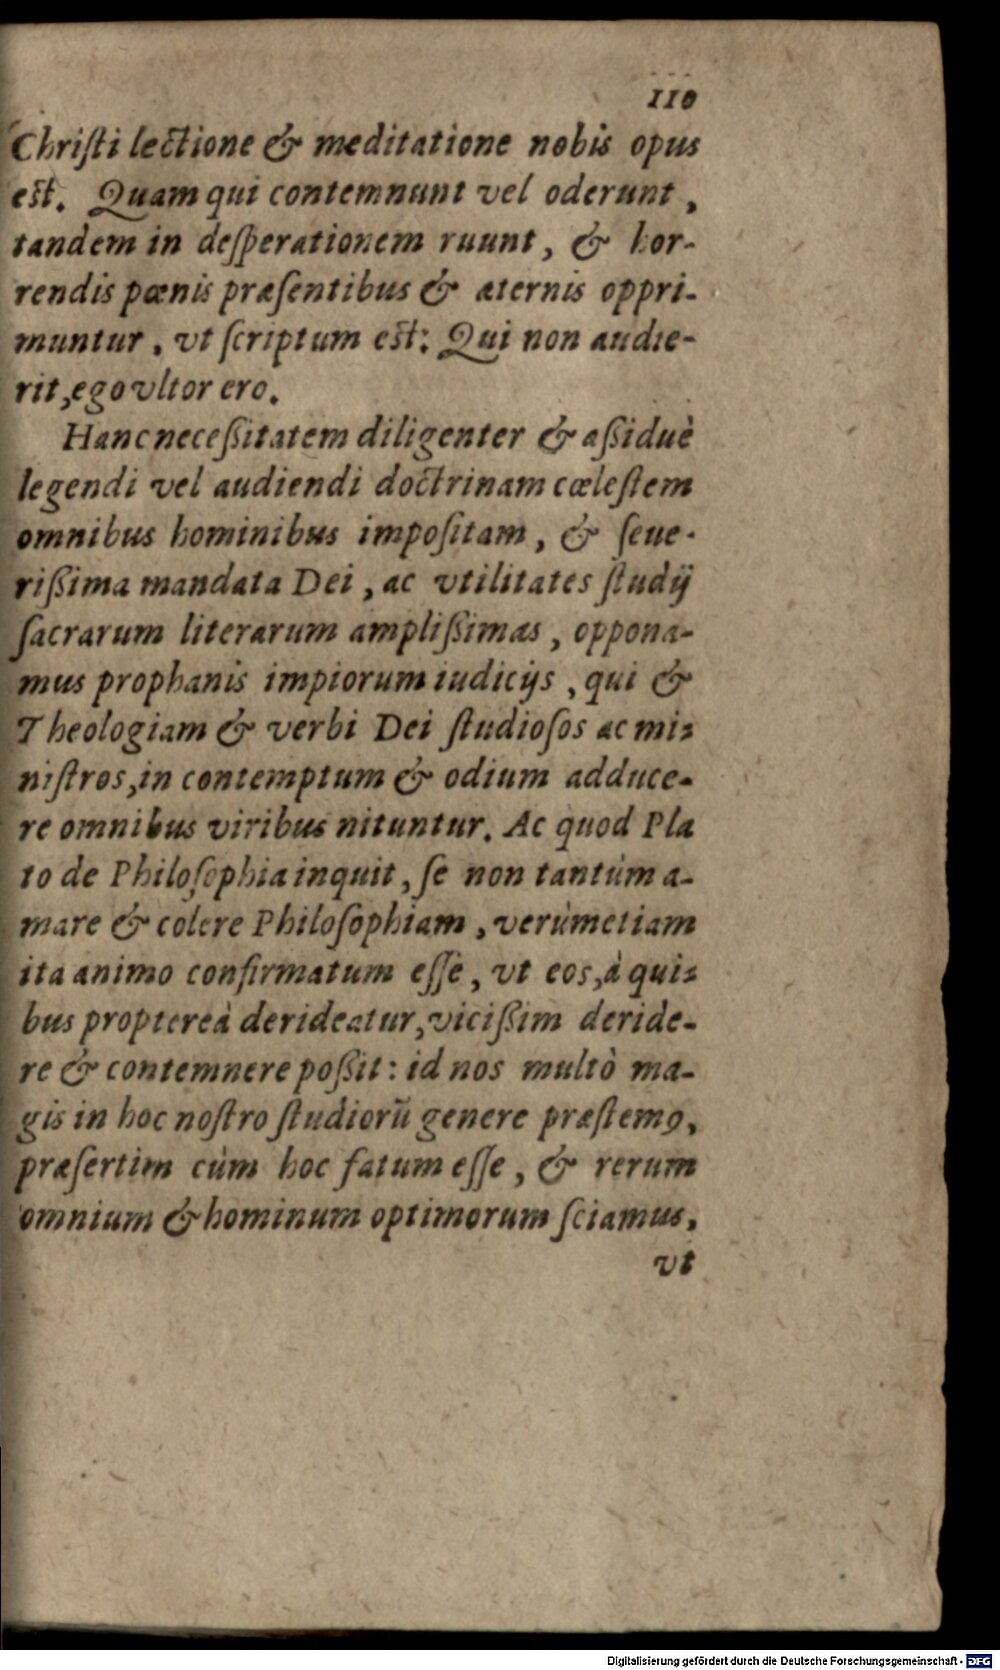 110
Chriſti lectione & meditatione nobis opus
est. Quam qui contemnunt vel oderunt,
tandem in deſperationem ruunt, & hor-
rendis pœnis præſentibus & æternis oppri-
muntur, vt ſcriptum est: Qui non audie-
rit, ego vltor ero.
Hanc neceßitatem diligenter & aßiduè
legendi vel audiendi doctrinam cœleſtem
omnibus hominibus impoſitam, & ſeue-
rißima mandata Dei, ac vtilitates ſtudij
ſacrarum literarum amplißimas, oppona-
mus prophanis impiorum iudicijs, qui &
Theologiam & verbi Dei ſtudioſos ac mi-
niſtros, in contemptum & odium adduce-
re omnibus viribus nituntur. Ac quod Pla
to de Philoſophia inquit, ſe non tantùm a-
mare & colere Philoſophiam, verùmetiam
ita animo confirmatum eſſe, vt eos, à qui-
bus proptereà derideatur, vicißim deride-
re & contemnere poßit: id nos multò ma-
gis in hoc noſtro ſtudiorū genere præſtemꝰ,
præſertim cùm hoc fatum eſſe, & rerum
omnium & hominum optimorum ſciamus,
vt
Digitalisierung gefördert durch die Deutsche Forschungsgemeinschaft - DFG